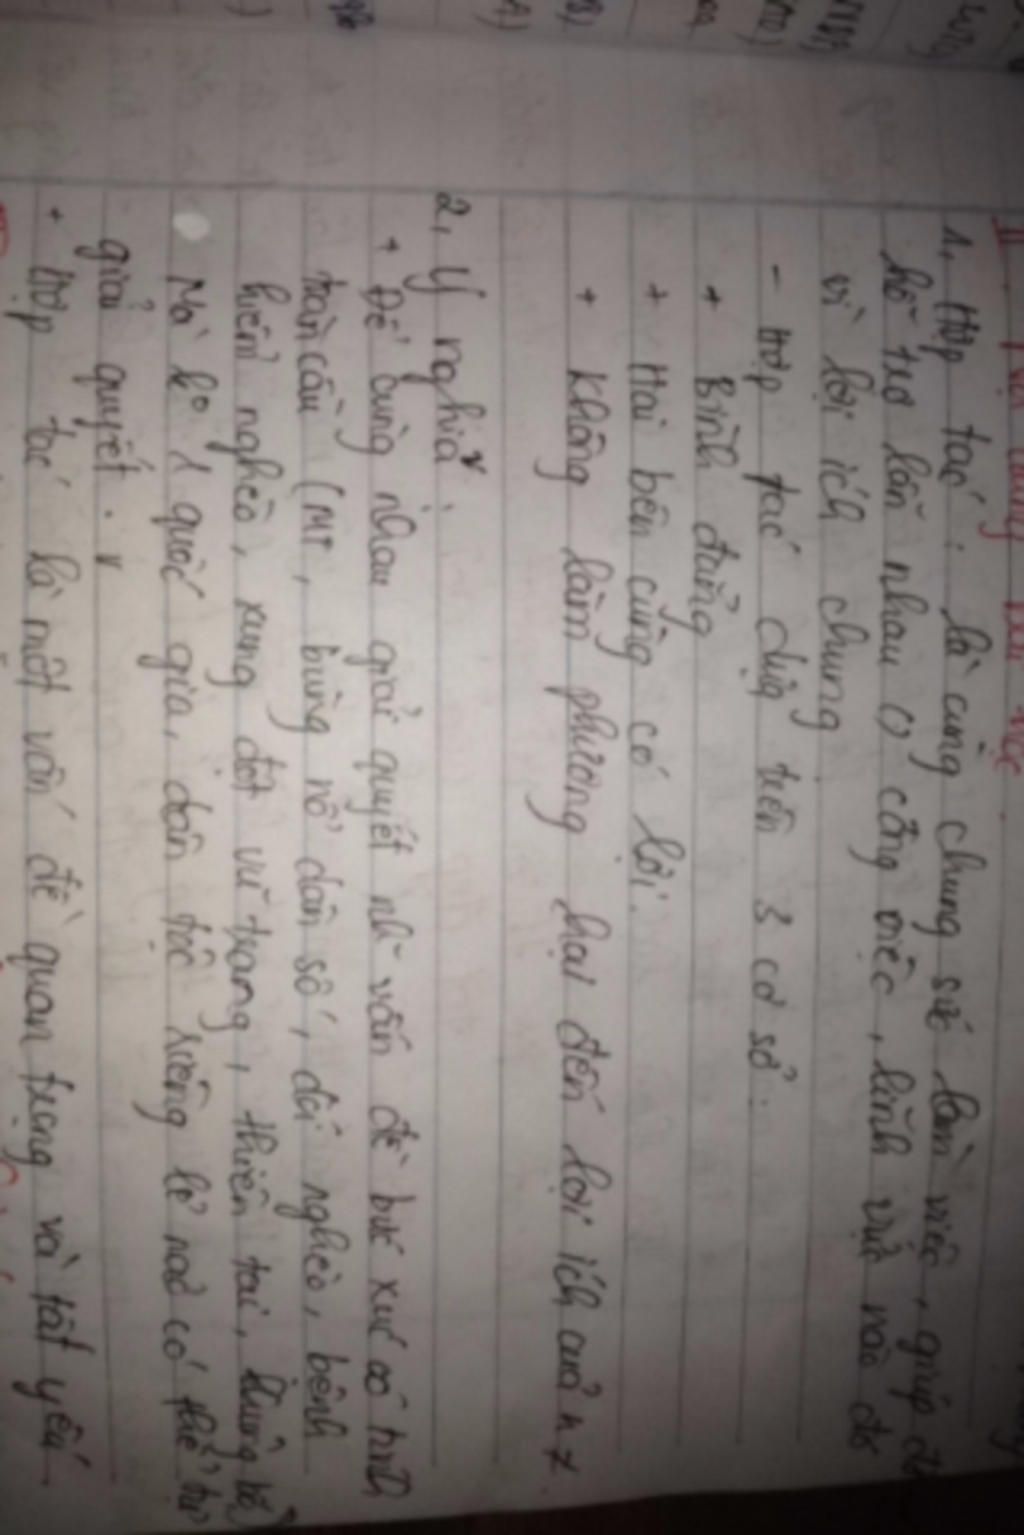 II
1, Hợp tác : là cùng chung sức làm việc, giúp đỡ
hỗ trợ lẫn nhau () công việc, lĩnh vực nào đó
vì lợi ích chung
- Hợp tác dựa trên 3 cơ sở :
+ Bình đẳng
+ Hai bên cùng có lợi.
+ Không làm phương hại đến lợi ích của n ≠.
2, Ý nghĩa :
+ Để cùng nhau giải quyết nh~ vấn đề bức xúc có tính
toàn cầu (MT, bùng nổ dân số, đói nghèo, bệnh
hiểm nghèo, xung đột vũ trang, thiên tai, khủng bố)
Mà ko 1 quốc gia, dân tộc riêng lẻ nào có thể tự
giải quyết.
+ Hợp tác là một vấn đề quan trọng và tất yếu.